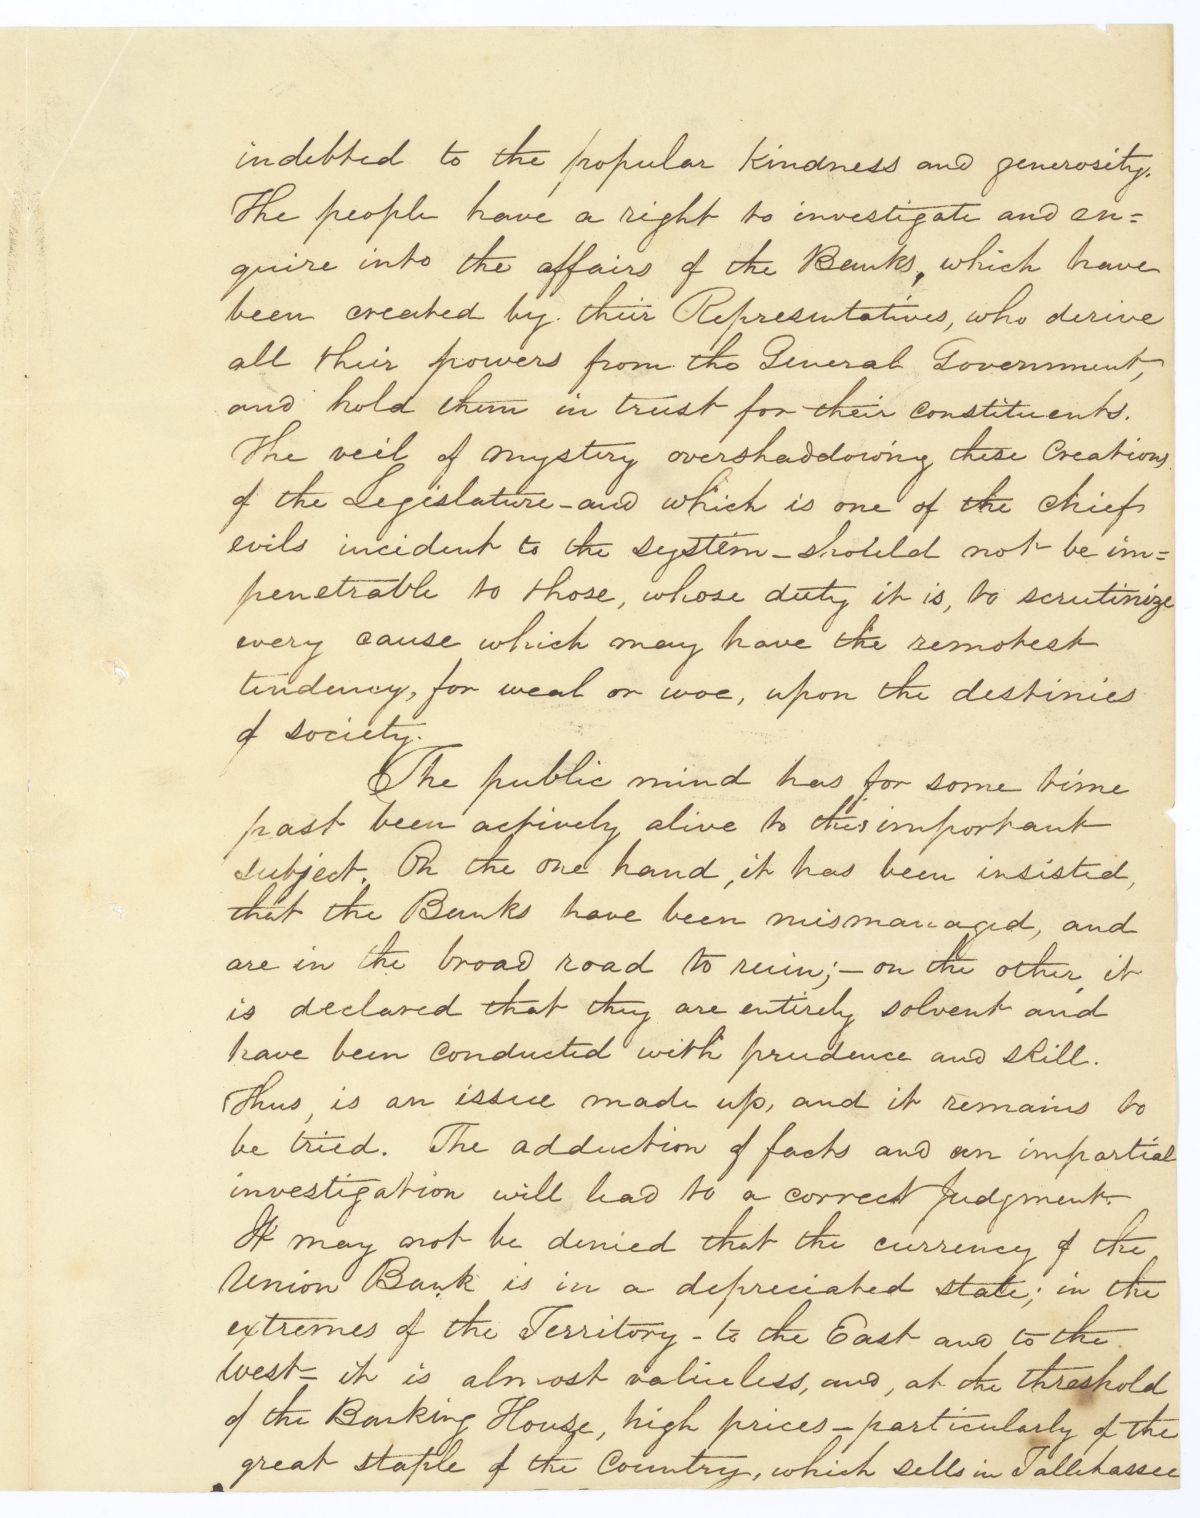 indebted to the popular kindness and generosity.
The people have a right to investigate and en=
quire into the affairs of the Banks, which have
been created by their Representatives, who derive
all their powers from the General Government,
and hold them in trust for their constituents.
The veil of mystery overshaddowing these Creations
of the Legislature - and which is one of the chief
evils incident to the system - should not be im=
penetrable to those, whose duty it is, to scrutinize
every cause which may have the remotest
tendency, for weal or woe, upon the destinies
of society.
The public mind has for some time
past been actively alive to this important
subject. On the one hand, it has been insisted,
that the Banks have been mismanaged, and
are in the broad road to ruin; - on the other, it
is declared that they are entirely solvent and
have been conducted with prudence and skill.
Thus, is an issue made up, and it remains to
be tried. The adduction of facts and an impartial
investigation will lead to a correct Judgment.
It may not be denied that the currency of the
Union Bank is in a depreciated state; in the
extremes of the Territory - to the East and to the
West = it is almost valueless, and, at the threshold
of the Banking House, high prices - particularly of the
great staple of the Country, which sells in Tallehassee